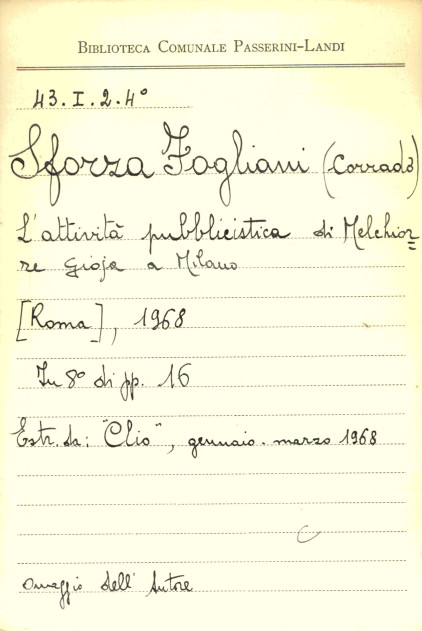 BIBLIOTECA COMUNALE PASSERINI-LANDI
43. I. 2. 4°
Sforza Fogliani (Corrado)
L'attività pubblicistica di Melchior=
re Gioja a Milano
[Roma], 1968
In 8° di pp. 16
Estr. da: "Clio", gennaio-marzo 1968
C
Omaggio dell' Autore